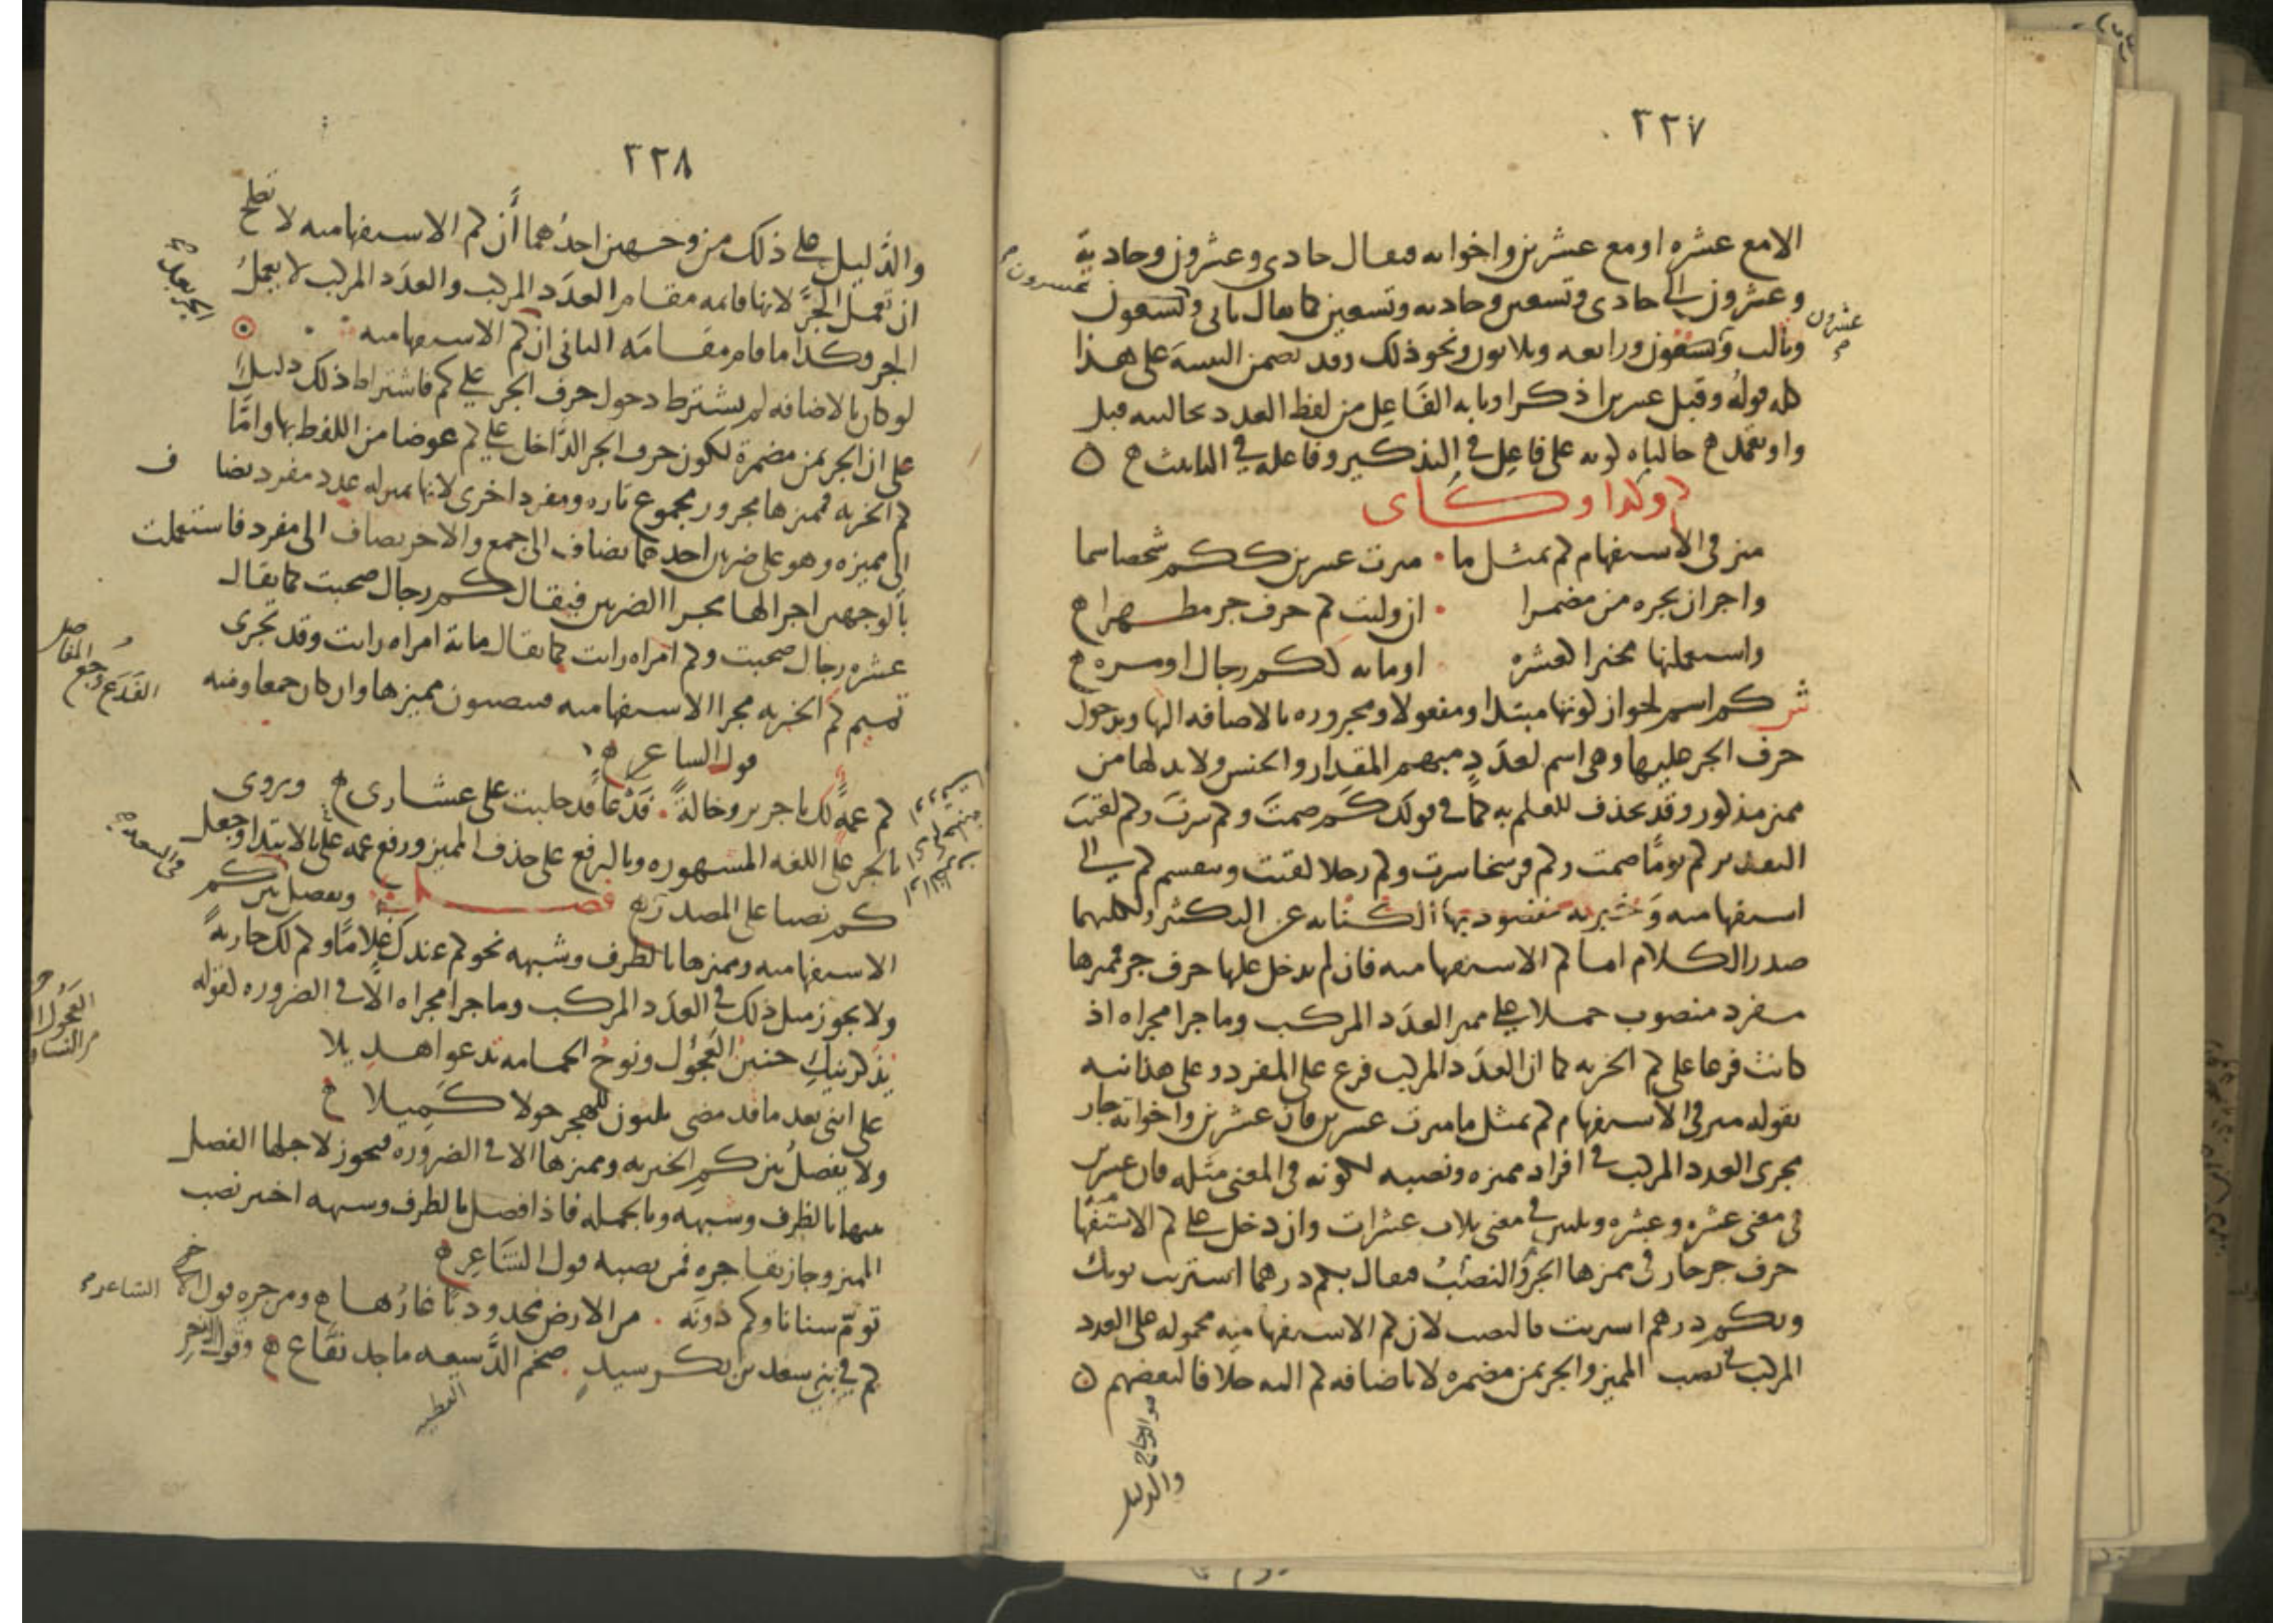 ٣٢٧
الا مع عشره او مع عشرين واخواته فيقال حادى وعشرون وحادية
وعشرون الى حادى وتسعين وحاديه وتسعين كما يقال ثانى وتسعون
عشرون
وثالث وتسعون ورابعه وثلاثون ونحو ذلك وقد تضمن التنبيه على هذا
كله قوله وقبل عشرين اذكرا وبابه الفاعل من لفظ العدد بحالتيه قبل
واو يعتمد ح حالتاه كونه على فاعل فى التذكير وفاعله فى التانيث ح ٥
كم وكذا وكاى
ميز فى الاستفهام كم بمثل ما • ميزت عشرين ككم شخصا سما
واجز ان تجره من مضمرا • ان وليت كم حرف جر مظهرا ح
واستعملنها مخبرا كعشره • او مائه ككم رجال او مره ح
ش كم اسم لجواز كونها مبتدا ومفعولا ومجروره بالاضافه اليها وبدخول
حرف الجر عليها وهى اسم لعدد مبهم المقدار والجنس ولا بد لها من
مميز مذكور وقد يحذف للعلم به كما فى قولك كم صمت وكم سرت وكم لقيت
التقدير كم يوما صمت وكم فرسخا سرت وكم رجلا لقيت وينقسم كم الى
استفهاميه وخبريه مقصود بها الكنايه عن التكثير ولكليهما
صدر الكلام اما كم الاستفهاميه فان لم يدخل عليها حرف جر فمميزها
مفرد منصوب حملا على مميز العدد المركب وما جرا مجراه اذ
كانت فرعا على كم الخبريه كما ان العدد المركب فرع على المفرد وعلى هذا نبه
بقوله ميز فى الاستفهام كم بمثل ما ميزت عشرين فان عشرين واخواته جار
مجرى العدد المركب فى افراد مميزه ونصبه لكونه فى المعنى مثله فان عشرين
فى معنى عشره وعشره وثلثين فى معنى ثلاث عشرات وان دخل على كم الاستفها
حرف جر جاز فى مميزها الجر والنصب فيقال بكم درهما اشتريت ثوبك
وبكم درهم اشتريت فالنصب لان كم الاستفهاميه محموله على العدد
المركب فى نصب المميز والجر بمن مضمره لا باضافه كم اليه خلافا لبعضهم ٥
هو الزجاج
والدليل
٣٢٨
والدليل على ذلك من وجهين احدهما ان كم الاستفهاميه لا تصلح
ان تعمل الجر لانها قائمه مقام العدد المركب والعدد المركب لا يعمل
الجر وكذا ما قام مقامه الثانى ان كم الاستفهاميه
لو كان بالاضافه لم يشترط دخول حرف الجر على كم فاشتراط ذلك دليل
على ان الجر بمن مضمرة لكون حرف الجر الداخل على كم عوضا من اللفظ بها واما
كم الخبريه فمميزها مجرور مجموع تاره ومفرد اخرى لانها بمنزله عدد مفرد يضاف
الى مميزه وهو على ضربين احدهما يضاف الى جمع والاخر يضاف الى مفرد فاستعملت
بالوجهين اجرا لها مجرا الضربين فيقال كم رجال صحبت كما يقال
عشره رجال صحبت وكم امراه رايت كما يقال مائة امراه رايت وقد تجرى
تميم كم الخبريه مجرا الاستفهاميه فينصبون مميزها وان كان جمعا ومنه
الفدع وجع المفاصل
قول الشاعر ح
كم عمة لك يا جرير وخالة • فدعا قد حلبت على عشارى ح ويروى
بالجر على اللغه المشهوره وبالرفع على حذف المميز ورفع عمه على الابتدا وجعل
كم نصبا على المصدريه فصل ويفصل بين كم
الاستفهاميه ومميزها بالظرف وشبهه نحو كم عندك غلاما وكم لك جارية
ولا يجوز مثل ذلك فى العدد المركب وما جرا مجراه الا فى الضروره كقوله
يذكرنيك حنين العجول ونوح الحمامه تدعو اهديلا
على اننى بعد ما قد مضى ثلثون للهجر حولا كميلا ح
ولا يفصل بين كم الخبريه ومميزها الا فى الضروره فيجوز لاجلها الفصل
بينها بالظرف وشبهه وبالجمله فاذا فصل بالظرف وشبهه اختير نصب
المميز وجاز بقا جره فمن نصبه قول الشاعر ح
توم سنانا وكم دونه • من الارض محدودبا غارها ح ومن جره قول الاخر
الشاعر
كم فى بنى سعد بن بكر سيد • ضخم الدسيعه ماجد نفاع ح وقول الاخر